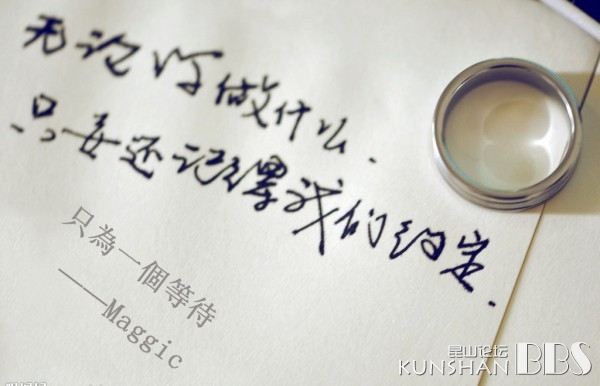 无论你做什么.
只要还记得我们约定.
只為一個等待
——Maggic
昆山论坛
KUNSHAN BBS